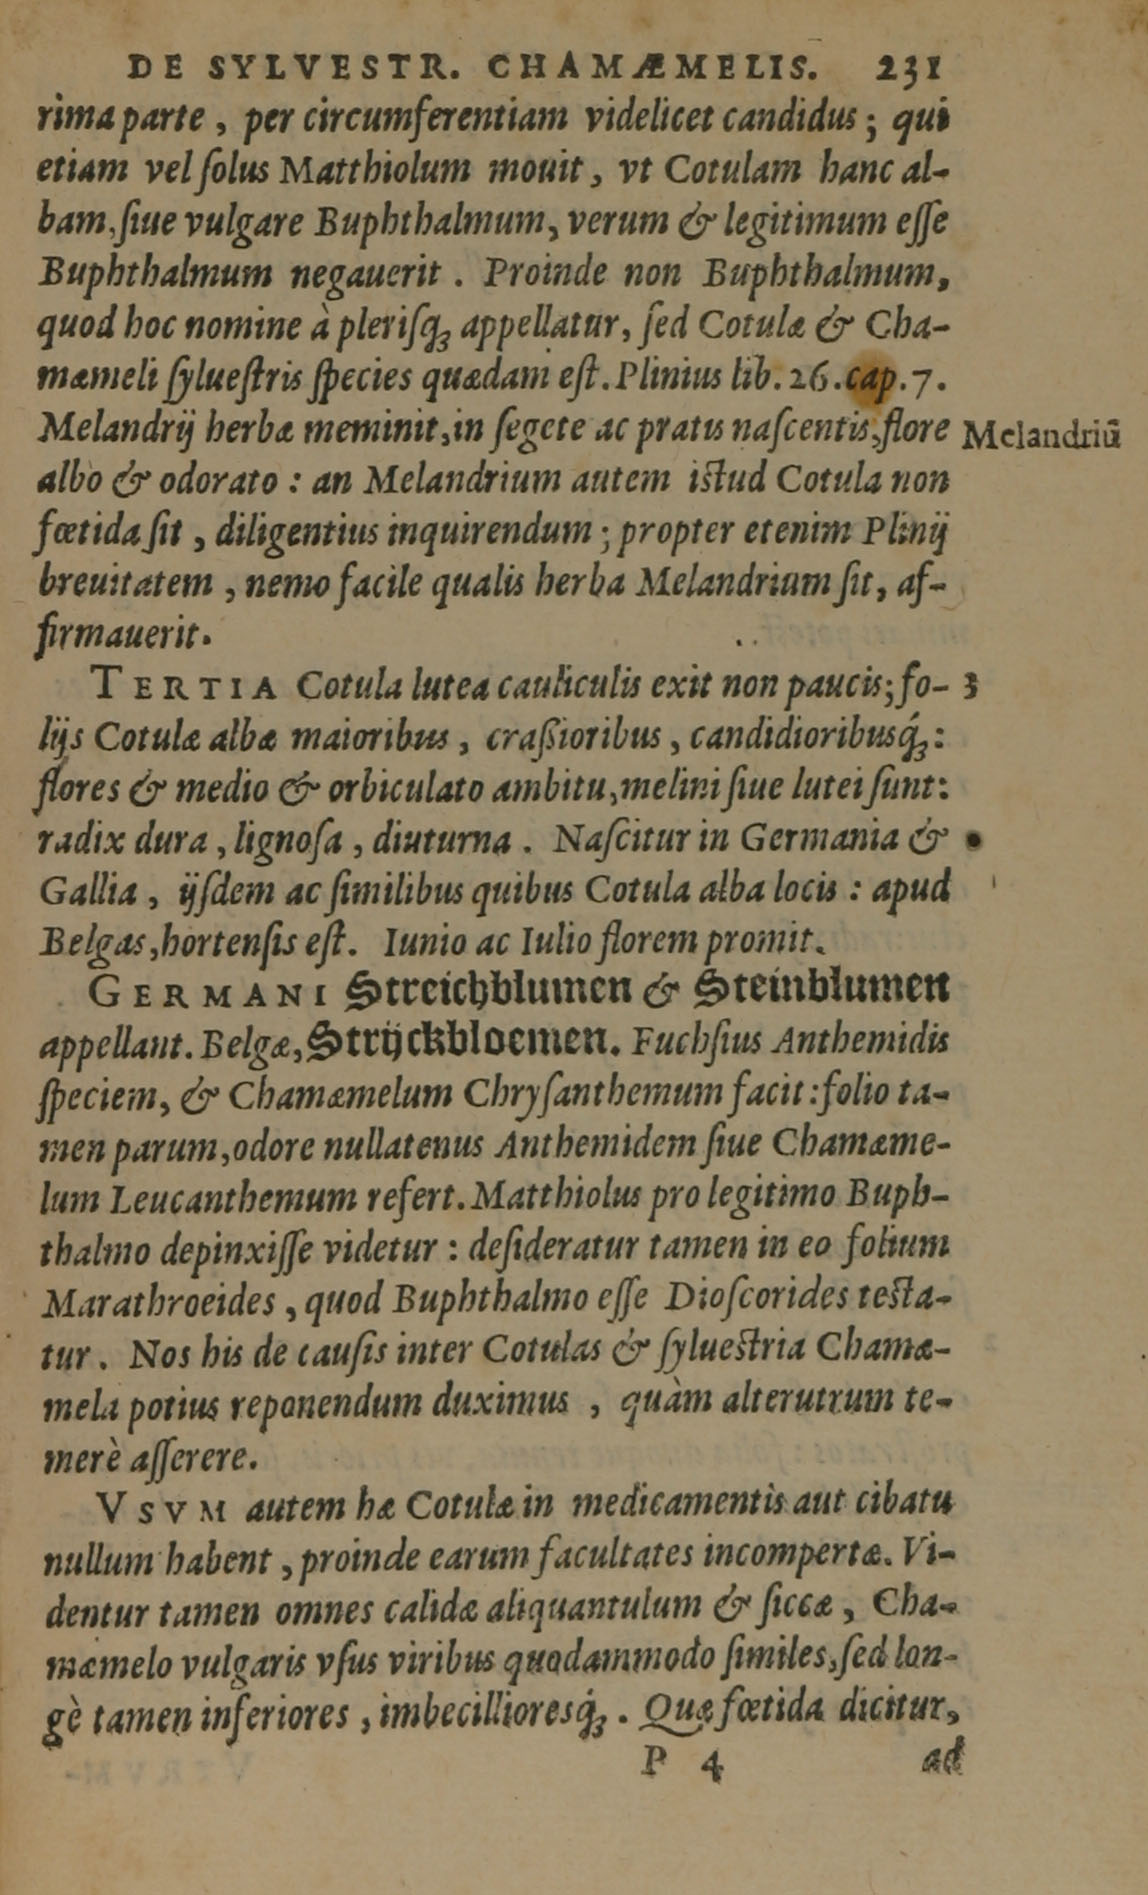 DE SYLVESTR. CHAMÆMELIS. 231
rima parte, per circumferentiam videlicet candidus; qui
etiam vel ſolus Matthiolum mouit, vt Cotulam hanc al-
bam, ſiue vulgare Buphthalmum, verum & legitimum eſſe
Buphthalmum negauerit. Proinde non Buphthalmum,
quod hoc nomine à pleriſqꝫ appellatur, ſed Cotulæ & Cha-
mæmeli ſylueſtris ſpecies quædam eſt. Plinius lib. 26. cap. 7.
Melandrij herbæ meminit, in ſegete ac pratis naſcentis, flore
Melandriū
albo & odorato: an Melandrium autem iſtud Cotula non
fœtida ſit, diligentius inquirendum; propter etenim Plinij
breuitatem, nemo facile qualis herba Melandrium ſit, af-
firmauerit.
TERTIA Cotula lutea cauliculis exit non paucis; fo-
3
lijs Cotulæ albæ maioribus, craßioribus, candidioribusq́ꝫ:
flores & medio & orbiculato ambitu, melini ſiue lutei ſunt:
radix dura, lignoſa, diuturna. Naſcitur in Germania &
Gallia, ijſdem ac ſimilibus quibus Cotula alba locis: apud
Belgas, hortenſis eſt. Iunio ac Iulio florem promit.
GERMANI Streichblumen & Steinblumen
appellant. Belgæ, Strijckbloemen. Fuchſius Anthemidis
ſpeciem, & Chamæmelum Chryſanthemum facit: folio ta-
men parum, odore nullatenus Anthemidem ſiue Chamæme-
lum Leucanthemum refert. Matthiolus pro legitimo Buph-
thalmo depinxiſſe videtur: deſideratur tamen in eo folium
Marathroeides, quod Buphthalmo eſſe Dioſcorides teſta-
tur. Nos his de cauſis inter Cotulas & ſylueſtria Chamæ-
mela potius reponendum duximus, quàm alterutrum te-
merè aſſerere.
VSVM autem hæ Cotulæ in medicamentis aut cibatu
nullum habent, proinde earum facultates incompertæ. Vi-
dentur tamen omnes calidæ aliquantulum & ſiccæ, Cha-
mæmelo vulgaris vſus viribus quodammodo ſimiles, ſed lon-
gè tamen inferiores, imbecillioresq́ꝫ. Quæ fœtida dicitur,
P 4 ad